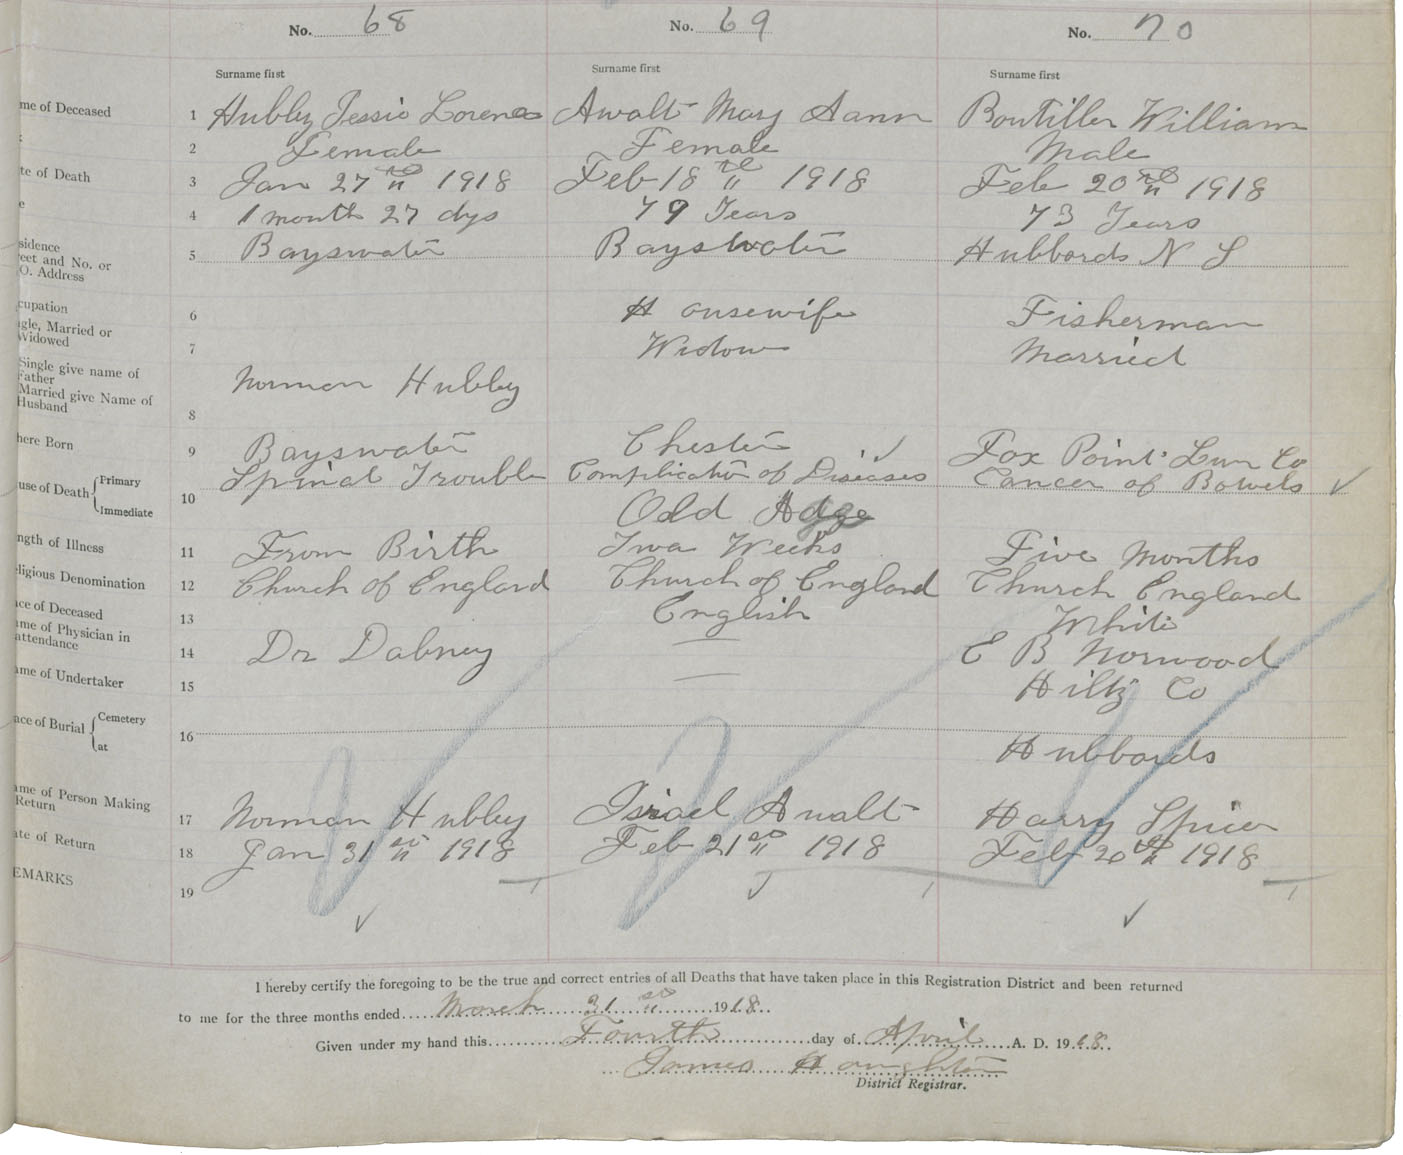 No. 68 No. 69 No. 70
Surname first Surname first Surname first
me of Deceased 1 Hubley Jessie Lorenea Awalt Mary Aann Boutilier William
2 Female Female Male
te of Death 3 Jan 27 1918 Feb 18 1918 Feb 20 1918
e 4 1 month 27 dys 79 Years 73 Years
sidence
eet and No. or 5 Bayswater Bayswater Hubbards N S
O. Address
cupation 6 Housewife Fisherman
gle, Married or
Widowed 7 Widow Married
Single give name of
Father Norman Hubley
Married give Name of
Husband 8
here Born 9 Bayswater Chester Fox Point Lun Co
use of Death Primary Spinal Trouble Complication of Diseases Cancer of Bowels
Immediate 10 Old Adge
ngth of Illness 11 From Birth Two Weeks Five Months
eligious Denomination 12 Church of England Church of England Church England
ace of Deceased 13 English White
ame of Physician in
attendance 14 Dr Dabney — E B Norwood
ame of Undertaker 15 — Hiltz Co
ace of Burial Cemetery 16
at Hubbards
ame of Person Making
Return 17 Norman Hubley Isriael Awalt Harry Spicer
ate of Return 18 Jan 31 1918 Feb 21 1918 Feb 20 1918
EMARKS 19
I hereby certify the foregoing to be the true and correct entries of all Deaths that have taken place in this Registration District and been returned
to me for the three months ended March 31 1918
Given under my hand this Fourth day of April A. D. 1918
James Haughton
District Registrar.